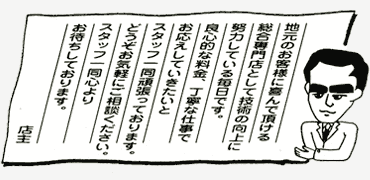 地元のお客様に喜んで頂ける
総合専門店として技術の向上に
努力している毎日です。
良心的な料金、丁寧な仕事で
お応えしていきたいと
スタッフ一同頑張っております。
どうぞお気軽にご相談ください。
スタッフ一同心より
お待ちしております。
店主